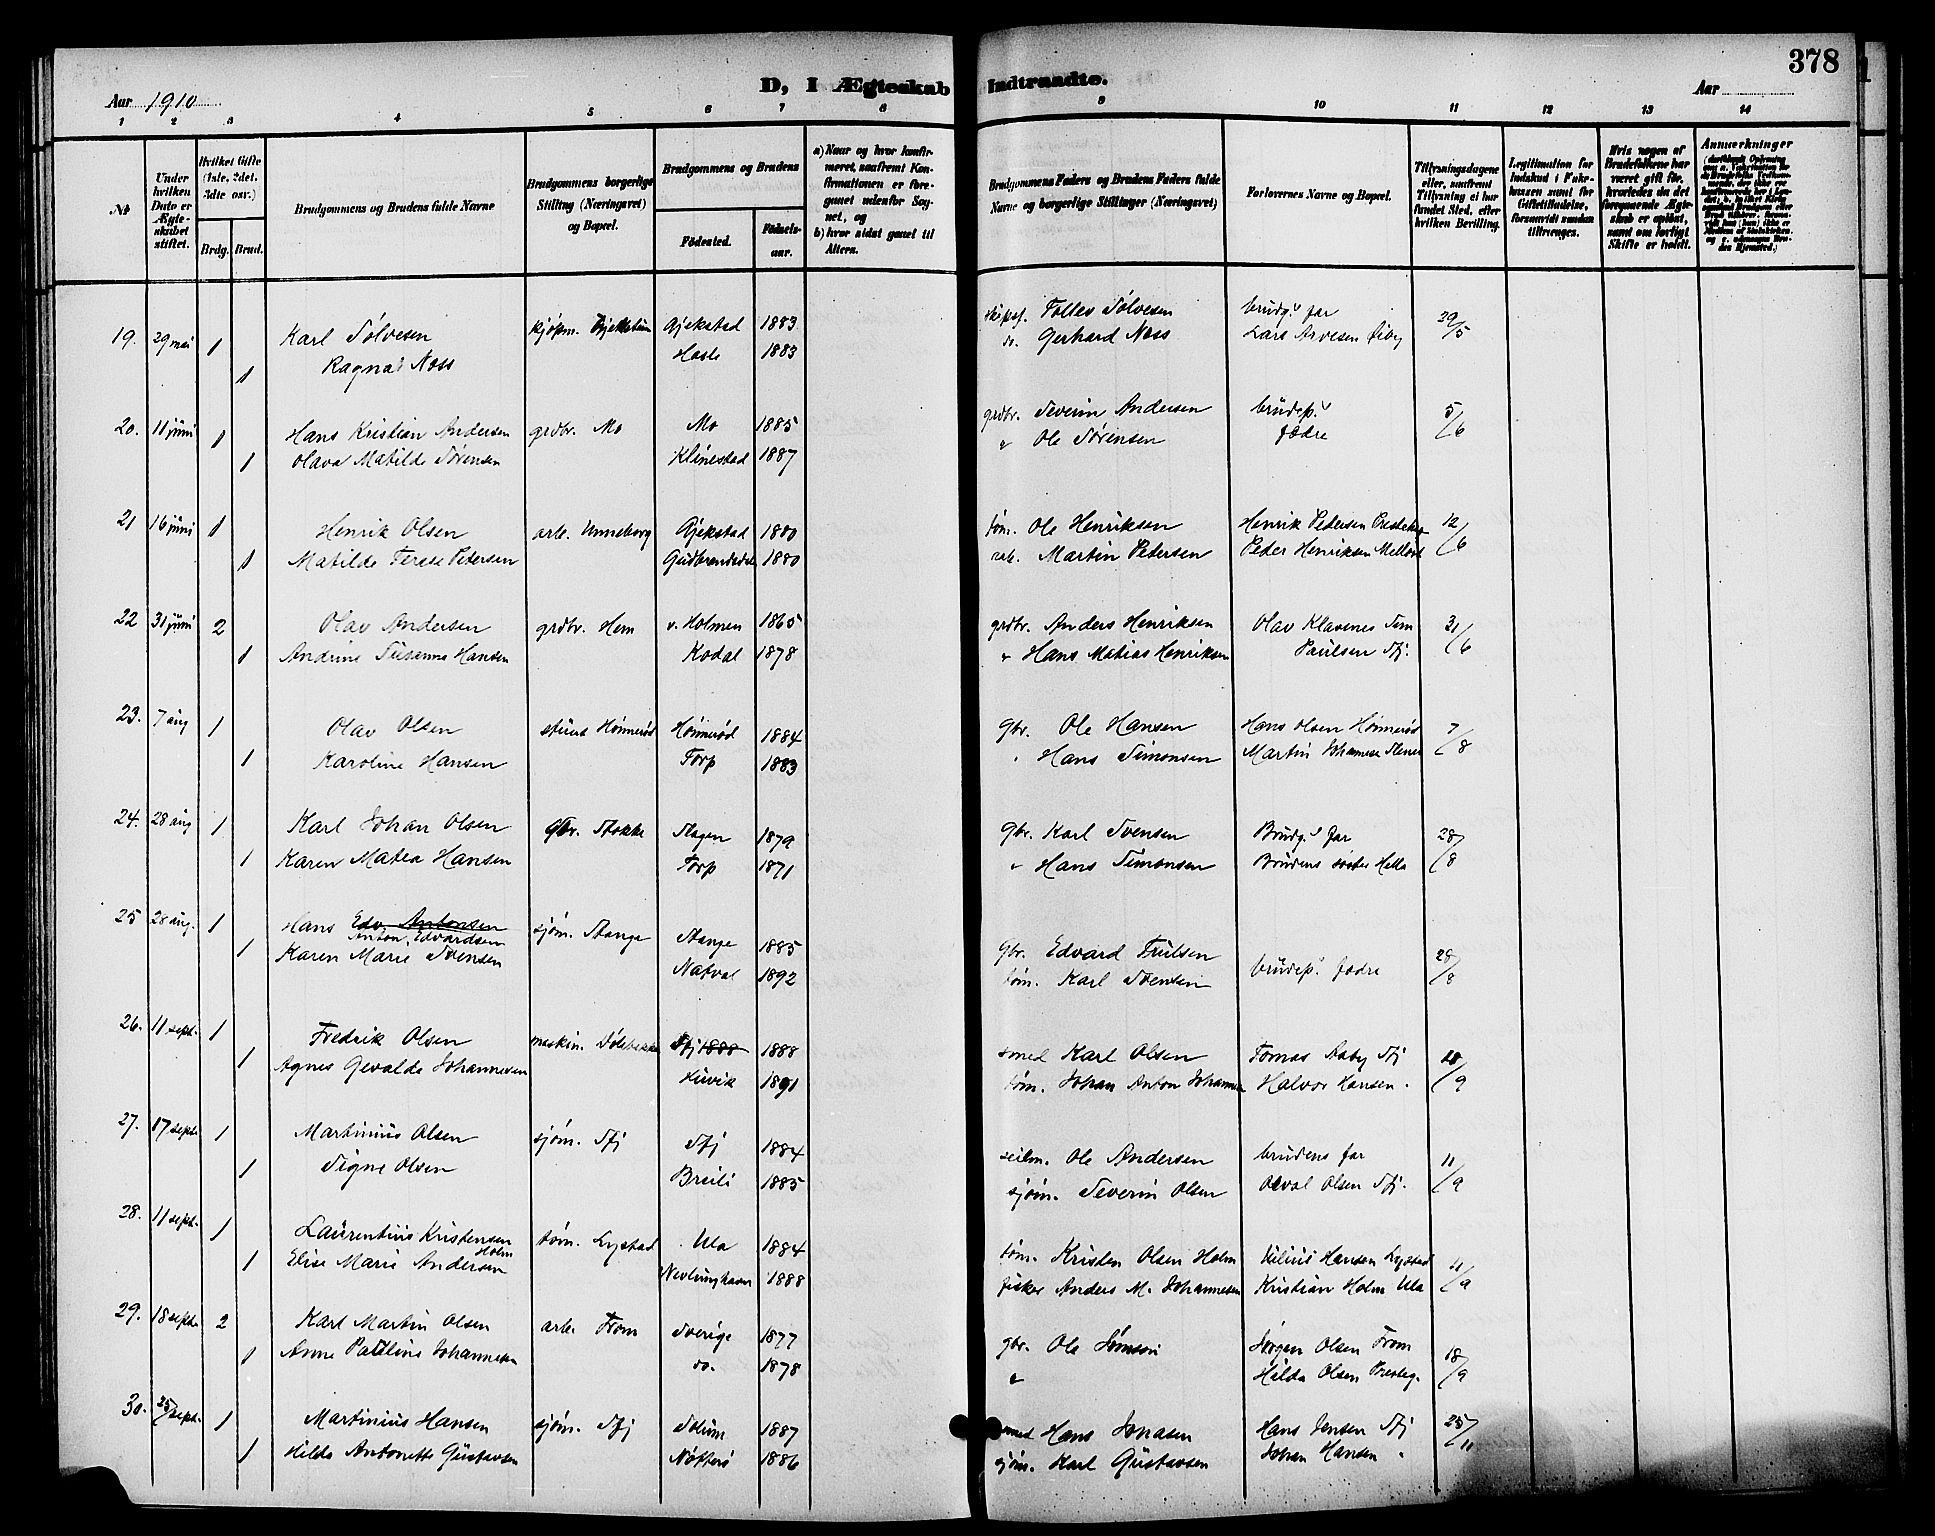 378
D, I Ægteskab Indtraadte.
Aar 1910
Aar
1 2 3 4 5 6 7 8 9 10 11 12 13 14
№
Under hvilken Dato er Ægteskabet stiftet.
Hvilket Gifte (1ste, 2det, 3die osv.)
Brdg. Brud.
Brudgommens og Brudens fulde Navne
Brudgommens borgerlige Stilling (Næringsvei) og Bopæl.
Brudgommens og Brudens
Fødested. Fødselsaar.
a) Naar og hvor konfirmeret, saafremt Konfirmationen er foregaaet udenfor Sognet, og
b) hvor sidst gaaet til Alters.
Brudgommens Faders og Brudens Faders fulde Navne og borgerlige Stillinger (Næringsvei)
Forlovernes Navne og Bopæl.
Tillysningsdagene eller, saafremt Tillysning ei har fundet Sted, efter hvilken Bevilling.
Legitimation for Indskud i Enkekassen samt for Giftetilladelse, forsaavidt saadan tiltrænges.
Hvis nogen af Brudefolkene har været gift før, hvorledes da det foregaaende Ægteskab er opløst, samt om lovligt Skifte er holdt.
Anmærkninger
19. 29 mai 1 Karl Sølvesen kjøpm. Gjekstad 1883 skipsf. Tollev Sølvesen brudg.s far 29/5
1 Ragna Noss Hasle 1883 do. Gerhard Noss Lars Arvesen
20. 11 juni 1 Hans Kristian Andersen grdbr. Mo Mo 1885 grdbr. Severin Andersen brudep.s 5/6
1 Olava Matilde Sørensen Klinestad 1887 " Ole Sørensen fædre
21 16 juni 1 Henrik Olsen arb. Unneborg Gjekstad 1880 tøm. Ole Henriksen Henrik Pedersen 12/6
1 Matilde Terese Petersen Gudbrandsdal 1880 arb. Martin Petersen Peder Henriksen
22 31 juni 2 Olav Andersen grdbr. Hem v. Holmen 1865 grdbr. Anders Henriksen Olav Klavenes 31/6
1 Andrine Susanne Hansen Kodal 1878 " Hans Matias Henriksen Paulsen Sfj.
23. 7 aug 1 Olav Olsen Hønnerød Hønnerød 1884 gbr. Ole Hansen Hans Olsen Hønnerød 7/8
1 Karoline Hansen Torp 1883 " Hans Simonsen Martin Johannesen
24. 28 aug 1 Karl Johan Olsen gbr. Stokke Slagen 1879 gbr. Karl Svensen Brudg.s far 28/8
1 Karen Matea Hansen Torp 1871 " Hans Simonsen Brudens
25 28 aug. 1 Hans Edv. Antonsen sjøm. Stange Stange 1885 gbr. Edvard Trulsen brudep.s fædre 28/8
Anton Edvardsen
1 Karen Marie Svensen Natval 1892 tøm. Karl Svensen
26. 11 sept. 1 Fredrik Olsen maskin. Sfj 1888 1888 smed Karl Olsen Tomas Aaby Sfj /9
1 Agnes Gevalde Johannesen Huvik 1891 tøm. Johan Anton Johannesen Halvor Hansen "
27. 17 sept. 1 Martinius Olsen sjøm. Sfj Sfj 1884 seilm. Ole Andersen brudens far 11/9
1 Signe Olsen Breili 1885 sjøm. Severin Olsen Olsen Sfj.
28. 11 sept. 1 Laurentius Kristensen Holm tøm. Lystad Ula 1884 tøm. Kristen Olsen Holm Julius Hansen Lystad 4/9
1 Elise Marie Andersen Nevlunghavn 1888 fisker Anders M. Johannesen Kristian Holm Ula
29. 18 sept. 2 Karl Martin Olsen arb. From Sverige 1877 gbr. Ole Jørgen Olsen From 18/9
1 Anne Pauline Johannesen do. 1878 " Hilda Olsen Presteg.
30. 25/sept. 1 Martinius Hansen sjøm. Sfj Solum 1887 smed Hans Jonasen Hans Jensen Sfj 25/11
1 Hilda Antonette Gustavsen Nøtterø 1886 sjøm. Karl Gustavsen Johan Hansen "